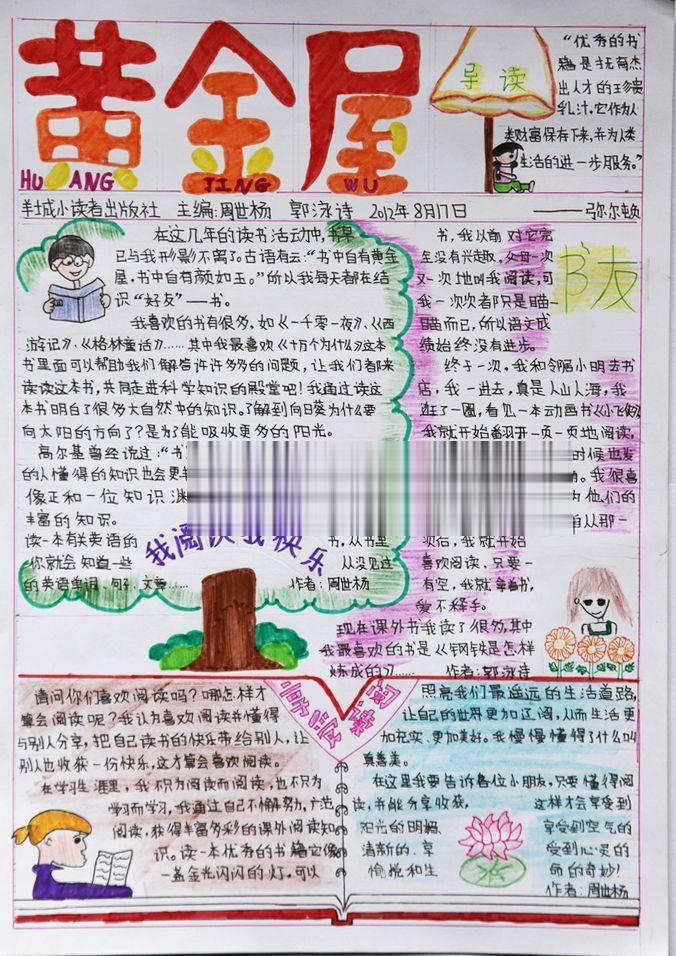 黄金屋
HUANG JING WU
导读
“优秀的书
籍是抚育杰
出人才的珍贵
乳汁，它作为人
类财富保存下来，并为人类
生活的进一步服务。”
——弥尔顿
羊城小读者出版社 主编：周世杨 郭泳诗 2012年8月17日
在这几年的读书活动中，书早
已与我形影不离了。古语有云：“书中自有黄金
屋，书中自有颜如玉。”所以我每天都在结
识“好友”——书。
我喜欢的书有很多，如《一千零一夜》、《西
游记》、《格林童话》……其中我最喜欢《十万个为什么》这本
书里面可以帮助我们解答许许多多的问题，让我们都来
读读这本书，共同走进科学知识的殿堂吧！我通过读这
本书明白了很多大自然中的知识。了解到向日葵为什么要
向太阳的方向了？是为了能吸收更多的阳光。
高尔基曾经说过：“书
的人懂得的知识也会更
像正和一位知识渊
丰富的知识。
读一本有关英语的 书，从书里
你就会知道一些 从没见过
的英语单词、句子、文章…… 作者：周世杨
我阅读我快乐
书友
书，我以前对它完
全没有兴趣，父母一次
又一次地叫我阅读，可
我一次次者都只是瞄一
瞄而已，所以语文成
绩始终没有进步。
终于一次，我和邻居小明去书
店，我一进去，真是人山人海，我
逛了一圈，看见一本动画书《小飞侠》
我就开始翻开一页一页地阅读，
时候也发
。我很喜
为他们的
自从那一
次后，我就开始
喜欢阅读，只要一
有空，我就拿着书，
爱不释手。
现在课外书我读了很多，其中
我最喜欢的书是《钢铁是怎样
炼成的》…… 作者：郭泳诗
请问你们喜欢阅读吗？哪怎样才
算会阅读呢？我认为喜欢阅读并懂得
与别人分享，把自己读书的快乐带给别人，让
别人也收获一份快乐，这才算会喜欢阅读。
在学习生涯里，我不只为阅读而阅读，也不只为
学习而学习，我通过自己不懈努力，广范
阅读，获得丰富多彩的课外阅读知
识。读一本优秀的书籍它像
一盏金光闪闪的灯，可以
阅读
照亮我们最遥远的生活道路，
让自己的世界更加辽阔，从而生活更
加充实、更加美好。我慢慢懂得了什么叫
真善美。
在这里我要告诉各位小朋友，只要懂得阅
读，并能分享收获， 这样才会享受到
阳光的明媚、 享受到空气的
清新的、享 受到心灵的
愉悦和生 命的奇妙！
作者：周世杨